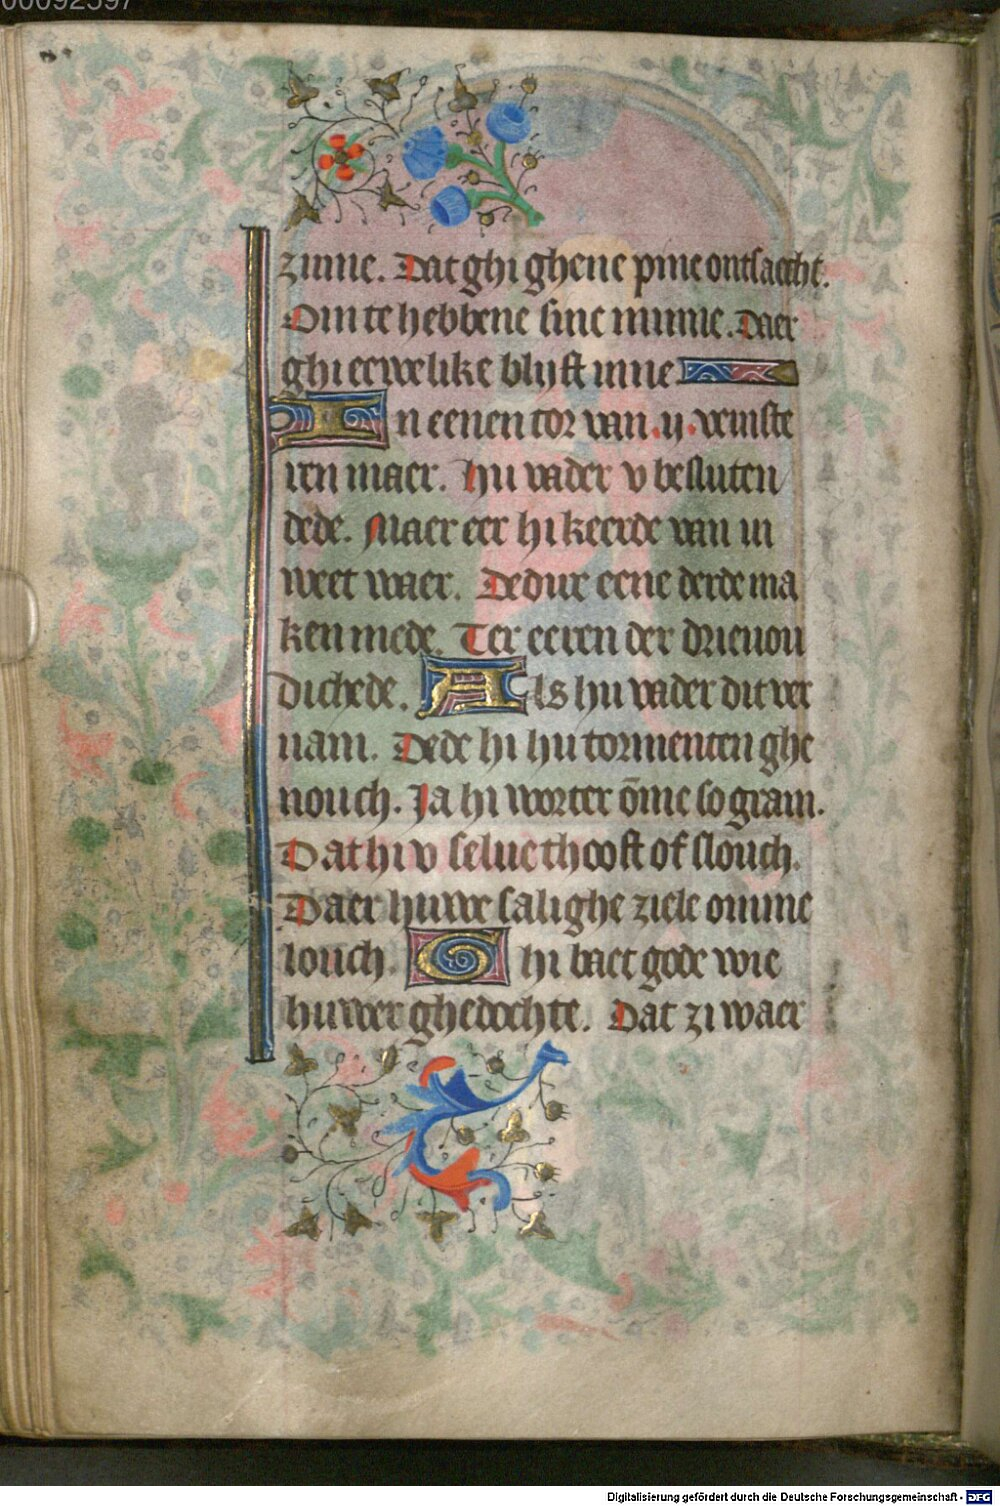 00092597
zinne. Dat ghi ghene pine ontsaecht.
Om te hebbene sine minne. Daer
ghi eewelike blijft inne
In eenen tor van .ij. veinste
ren maer. Hu vader v besluten
dede. Maer eer hi keerde van in
weet waer. Dedure eene derde ma
ken mede. Ter eeren der drievou
dichede. Als hu vader dit ver
nam. Dede hi hu tormenten ghe
nouch. Ja hi worter ōme so gram.
Dat hi v selue thooft of slouch.
Daer huwe salighe ziele omme
louch. Ghi baet gode wie
huwer ghedochte. Dat zi waer
Digitalisierung gefördert durch die Deutsche Forschungsgemeinschaft - DFG